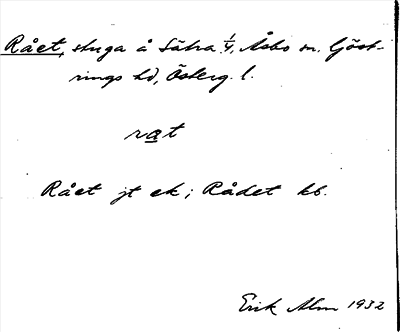 Rået, stuga å Sätra 1/4, Åsbo sn. Göst-
rings hd, Österg. l.
rat
Rået jt ek; Rådet kb.
Erik Alm 1932